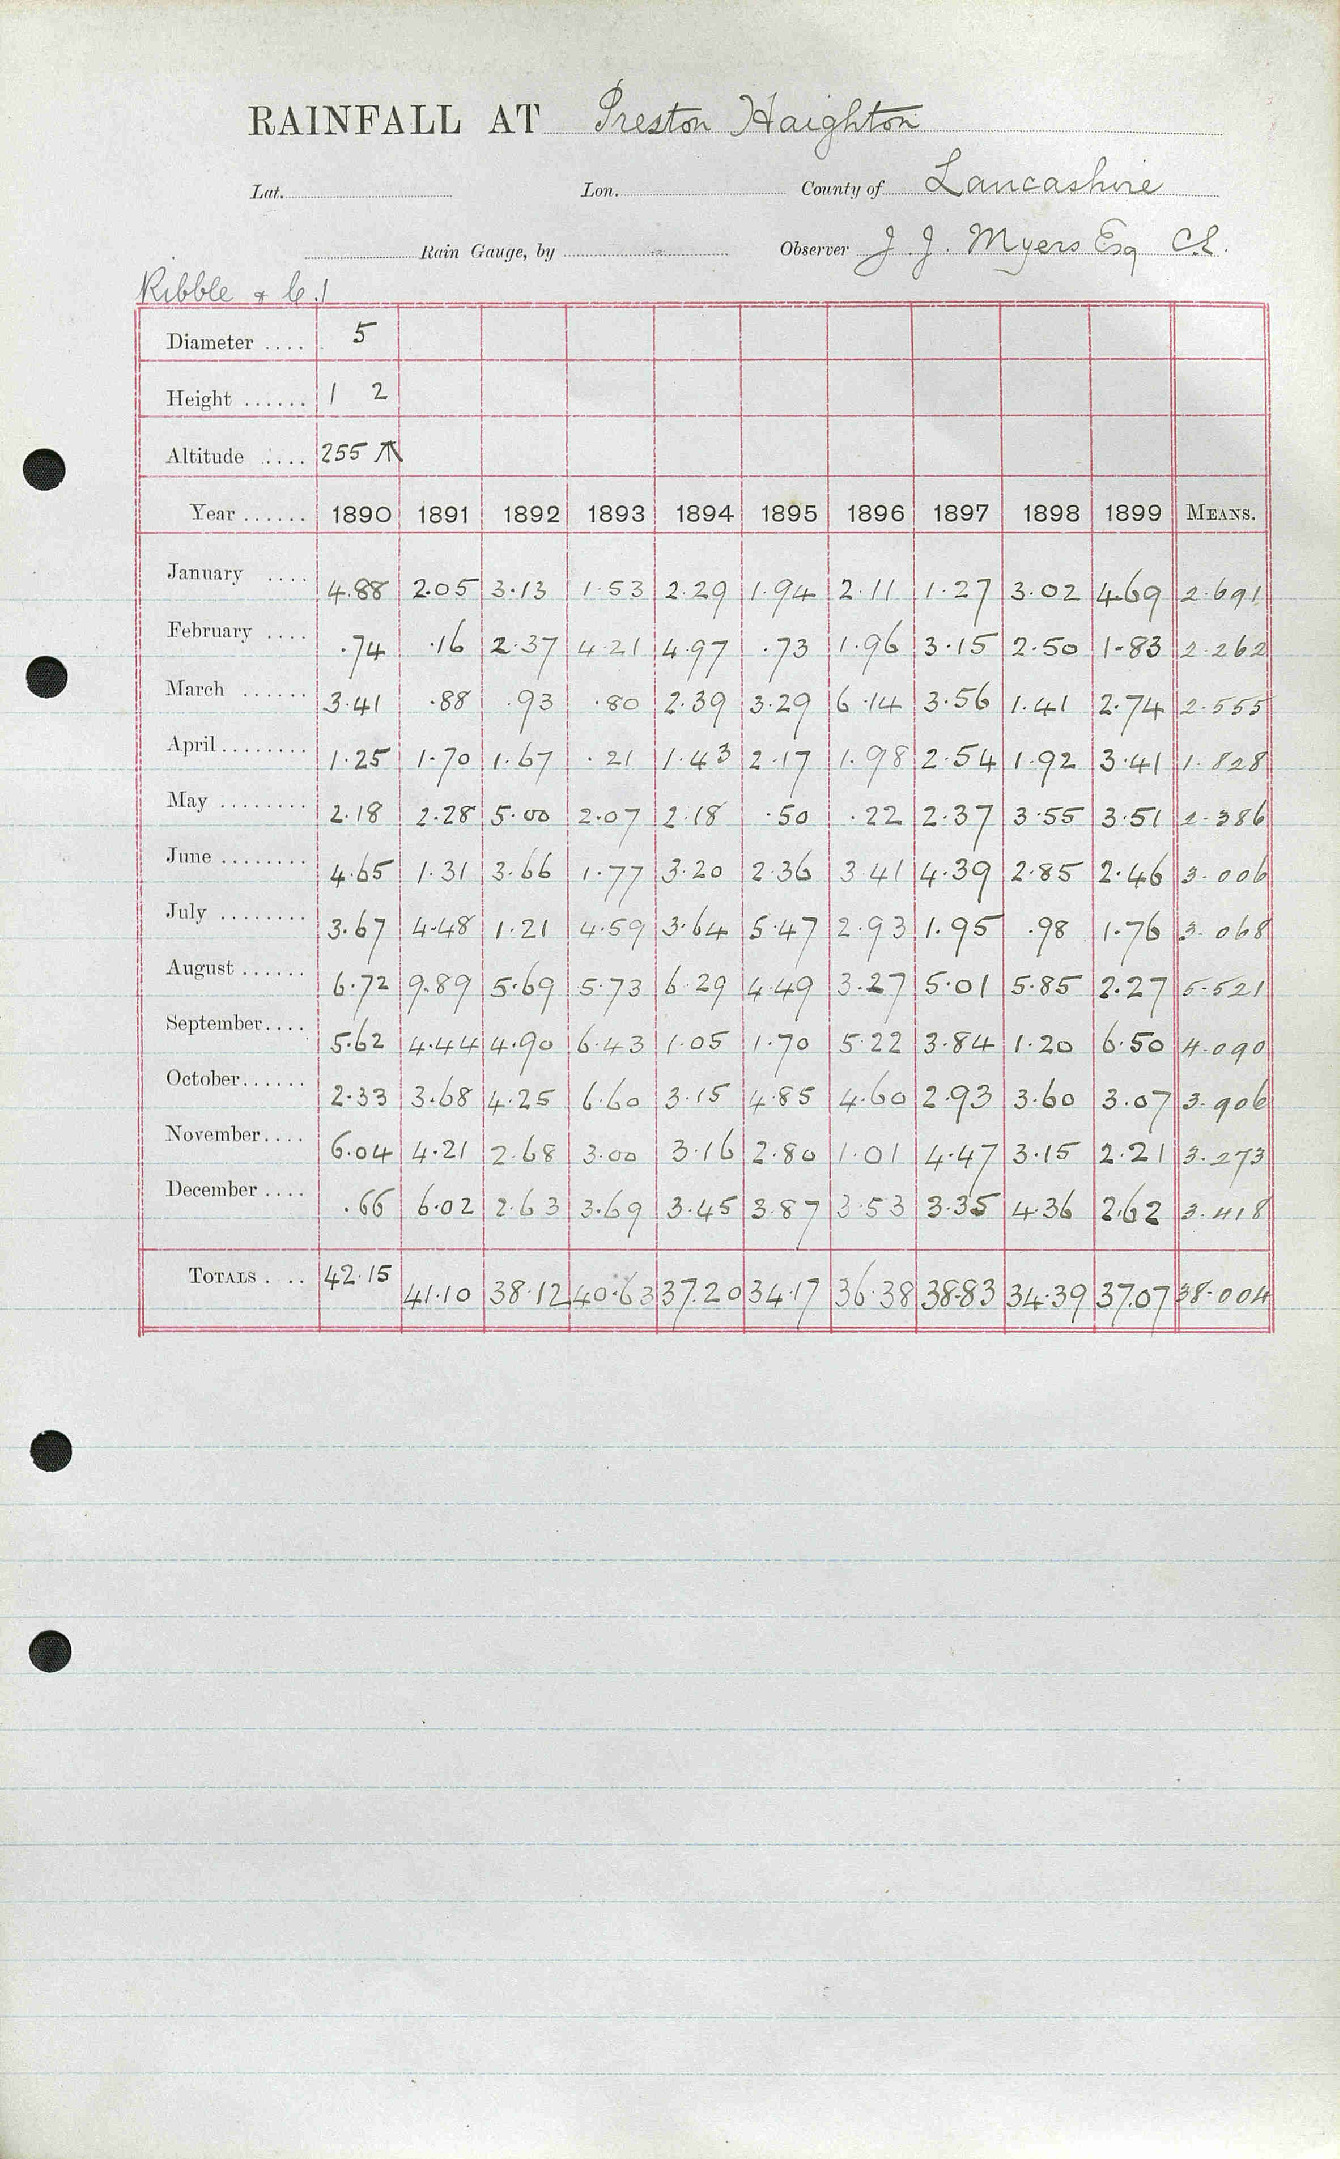 RAINFALL AT Preston Haighton
Lat. Lon. County of Lancashire
Rain Gauge, by Observer J. J. Myers Esq C.E.
Ribble & C.1
Diameter .... 5
Height ...... 1 2
Altitude .... 255
Year ...... 1890 1891 1892 1893 1894 1895 1896 1897 1898 1899 MEANS.
January .... 4.88 2.05 3.13 1.53 2.29 1.94 2.11 1.27 3.02 4.69 2.691
February .... .74 .16 2.37 4.21 4.97 .73 1.96 3.15 2.50 1.83 2.262
March ...... 3.41 .88 .93 .80 2.39 3.29 6.14 3.56 1.41 2.74 2.555
April ........ 1.25 1.70 1.67 .21 1.43 2.17 1.98 2.54 1.92 3.41 1.828
May ........ 2.18 2.28 5.00 2.07 2.18 .50 .22 2.37 3.55 3.51 2.386
June ........ 4.65 1.31 3.66 1.77 3.20 2.36 3.41 4.39 2.85 2.46 3.006
July ........ 3.67 4.48 1.21 4.59 3.64 5.47 2.93 1.95 .98 1.76 3.068
August ...... 6.72 9.89 5.69 5.73 6.29 4.49 3.27 5.01 5.85 2.27 5.521
September .... 5.62 4.44 4.90 6.43 1.05 1.70 5.22 3.84 1.20 6.50 4.090
October ...... 2.33 3.68 4.25 6.60 3.15 4.85 4.60 2.93 3.60 3.07 3.906
November .... 6.04 4.21 2.68 3.00 3.16 2.80 1.01 4.47 3.15 2.21 3.273
December .... .66 6.02 2.63 3.69 3.45 3.87 3.53 3.35 4.36 2.62 3.418
TOTALS . .. 42.15 41.10 38.12 40.63 37.20 34.17 36.38 38.83 34.39 37.07 38.004